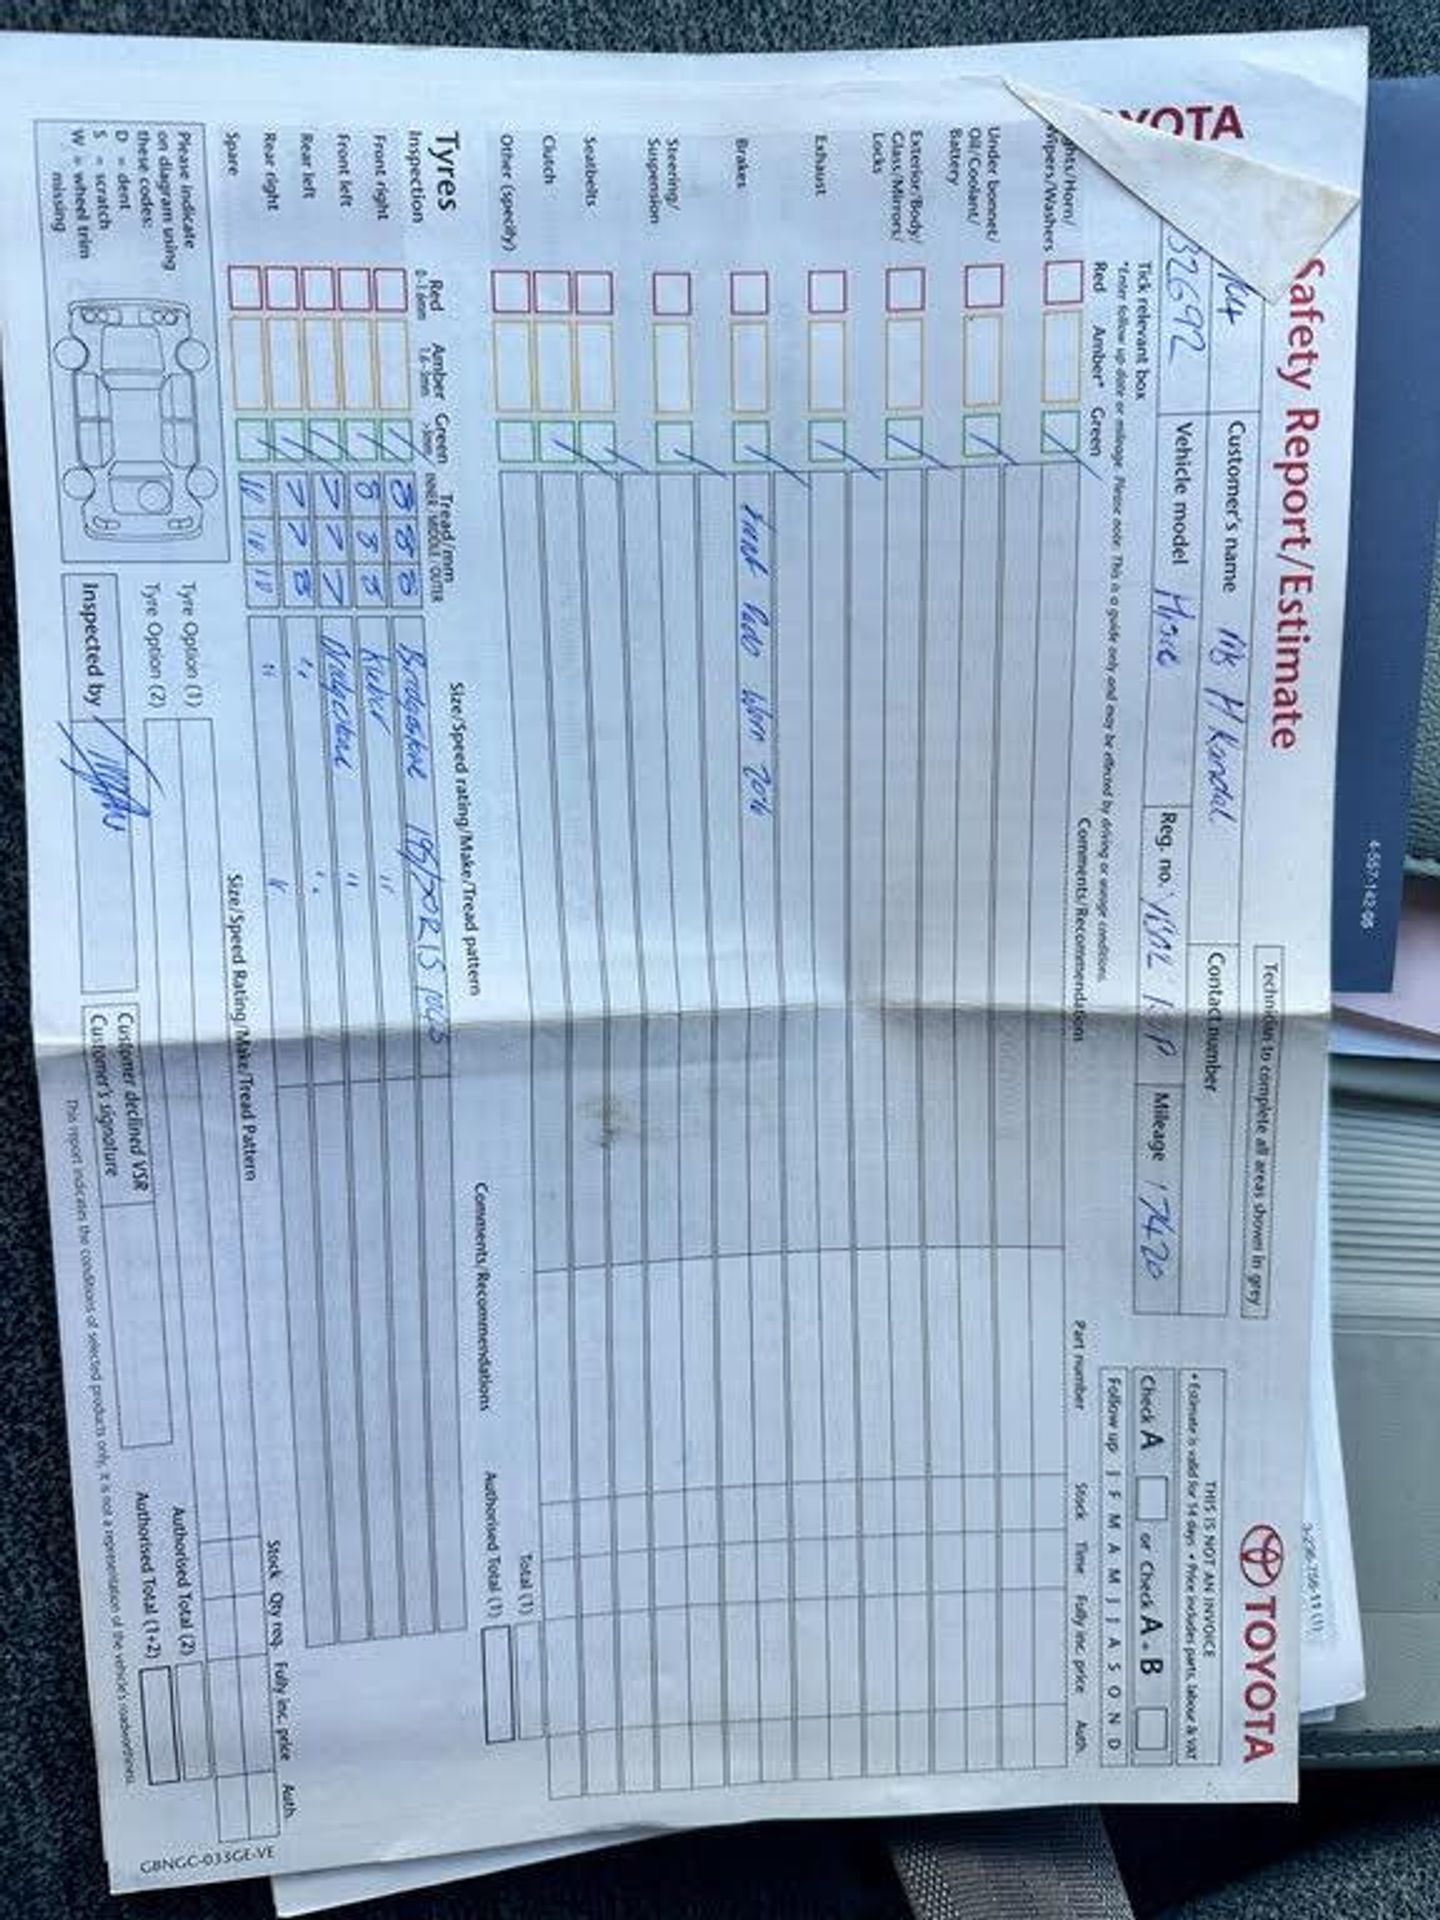 OYOTA
Safety Report/Estimate
Technician to complete all areas shown in grey
TOYOTA
Customer's name
Contact number
32692
Vehicle model
Reg. no.
Mileage 17420
THIS IS NOT AN INVOICE
• Estimate is valid for 14 days • Price includes parts, labour & VAT
Check A or Check A + B
Follow up J F M A M J J A S O N D
Tick relevant box
*Enter follow up date or mileage. Please note: This is a guide only and may be effected by driving or usage conditions.
Red Amber* Green Comments/Recommendations Part number Stock Time Fully inc. price Auth.
ghts/Horn/
Wipers/Washers
Under bonnet/
Oil/Coolant/
Battery
Exterior/Body/
Glass/Mirrors/
Locks
Exhaust
Brakes Front Pads Worn 20%
Steering/
Suspension
Seatbelts
Clutch
Other (specify)
Total (1)
Authorised Total (1)
Tyres
Inspection
Red
0-1.6mm
Amber
1.6-3mm
Green
>3mm
Tread/mm
INNER MIDDLE OUTER
Size/Speed rating/Make/Tread pattern Comments/Recommendations
Front right 8 8 8 Bridgestone 195/50R15
Front left 8 8 8 "
Rear left 7 7 7 Bridgestone "
Rear right 7 7 8 " "
Spare 10 10 10 " "
Size/Speed Rating/Make/Tread Pattern Stock Qty req. Fully inc. price Auth.
Please indicate
on diagram using
these codes:
D = dent
S = scratch
W = wheel trim
missing
Tyre Option (1)
Tyre Option (2)
Inspected by
Customer declined VSR
Customer's signature
Authorised Total (2)
Authorised Total (1+2)
This report indicates the conditions of selected products only, it is not a representation of the vehicle's roadworthiness.
GBNGC-033GE-VE
4-557-142-05